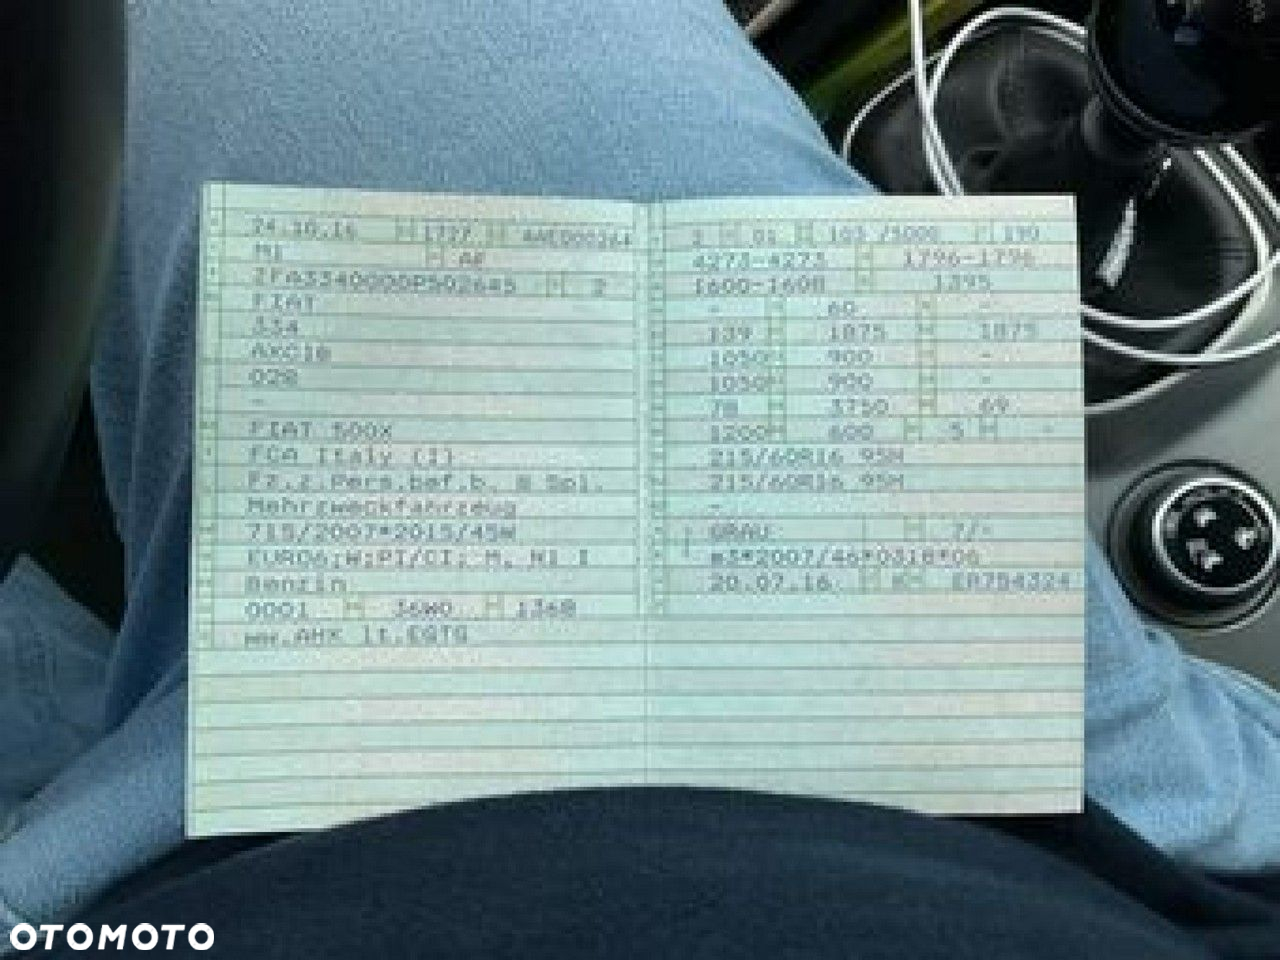 24.10.16 1727 AAE000264
M1 AF
ZFA3340000P502645 2
FIAT
334
AXC1B
02B
-
FIAT 500X
FCA Italy (I)
Fz.z.Pers.bef.b. 8 Spl.
Mehrzweckfahrzeug
715/2007*2015/45W
EURO6;W;PI/CI; M, N1 I
Benzin
0001 36W0 1368
ww.AHK lt.EGTG
2 01 103 /5000 190
4273-4273 1796-1796
1600-1608 1395
- 60 -
139 1875 1875
1050 900 -
1050 900 -
78 3750 69
1200 600 5 -
215/60R16 95H
215/60R16 95H
-
GRAU 7/-
e3*2007/46*0318*06
20.07.16 K EA754324
OTOMOTO